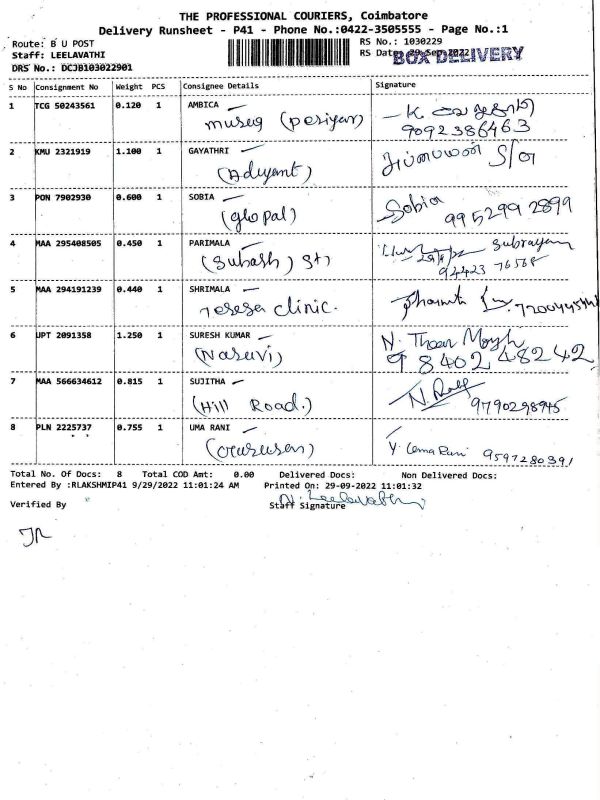 THE PROFESSIONAL COURIERS, Coimbatore
Delivery Runsheet - P41 - Phone No.:0422-3505555 - Page No.:1
Route: B U POST
RS No.: 1030229
Staff: LEELAVATHI
RS Date: 29-Sep-2022
BOX DELIVERY
DRS No.: DCJB103022901
S No Consignment No Weight PCS Consignee Details Signature
1 TCG 50243561 0.120 1 AMBICA
(Periyar)
9092386463
2 KMU 2321919 1.100 1 GAYATHRI
S/o
3 PON 7902930 0.600 1 SOBIA Sobia
(glopal) 9952992899
4 MAA 295408505 0.450 1 PARIMALA
(Subash) St) 94423 76568
5 MAA 294191239 0.440 1 SHRIMALA
Teresa clinic.
6 UPT 2091358 1.250 1 SURESH KUMAR
(Nasuvi) 98402 48242
7 MAA 566634612 0.815 1 SUJITHA
(Hill Road.) 9790298945
8 PLN 2225737 0.755 1 UMA RANI
Y. Uma Rani 9597280391
Total No. Of Docs: 8 Total COD Amt: 0.00 Delivered Docs: Non Delivered Docs:
Entered By :RLAKSHMIP41 9/29/2022 11:01:24 AM Printed On: 29-09-2022 11:01:32
N. Leelavathi
Verified By Staff Signature